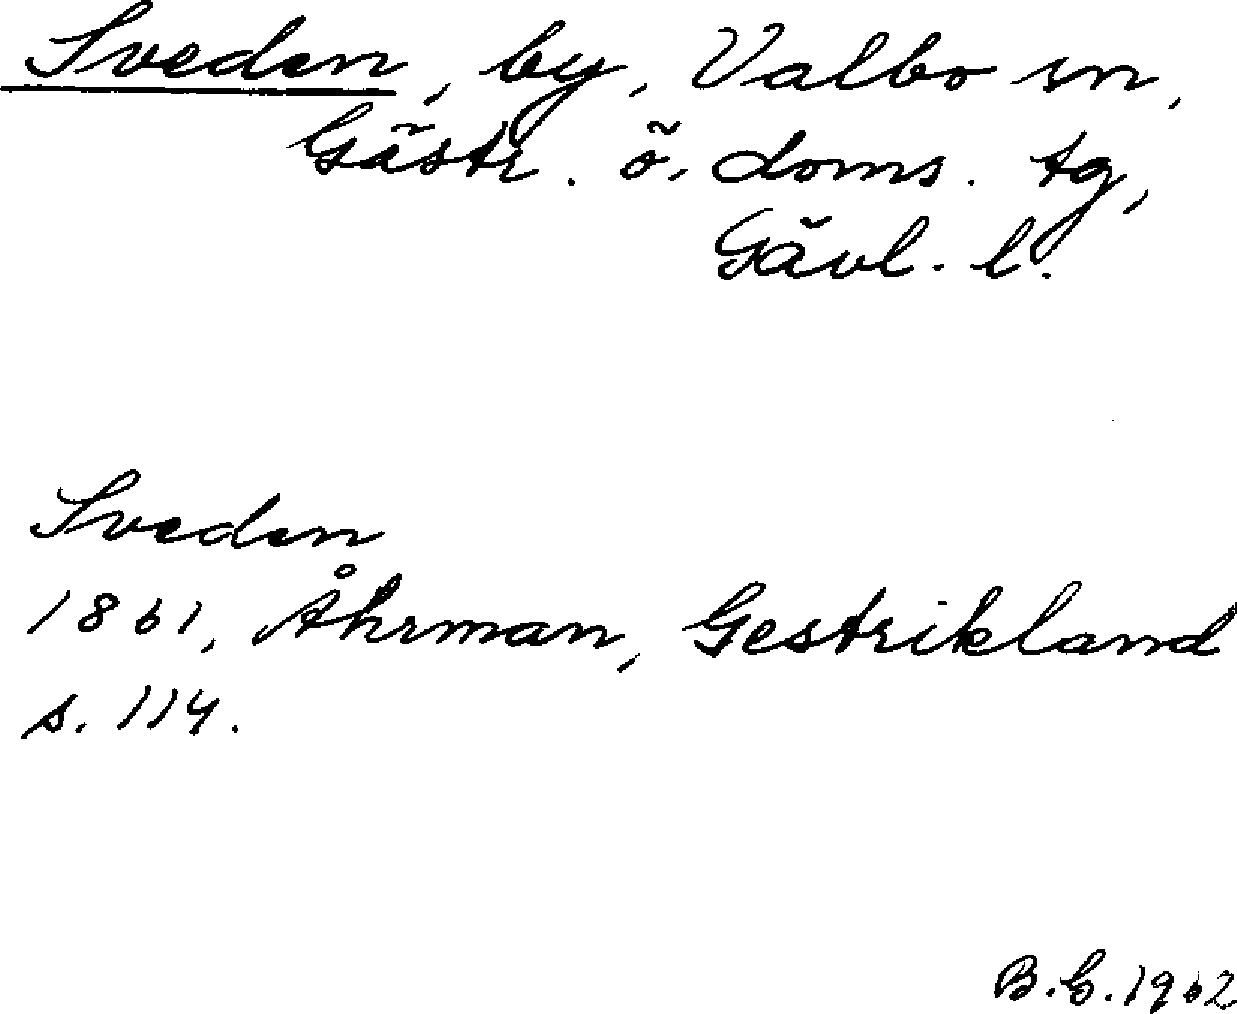 Sveden, by, Valbo sn,
Gästr. ö. doms. tg,
Gävl. l.
Sveden
1861, Åhrman, Gestrikland
s. 114.
B.C. 1962